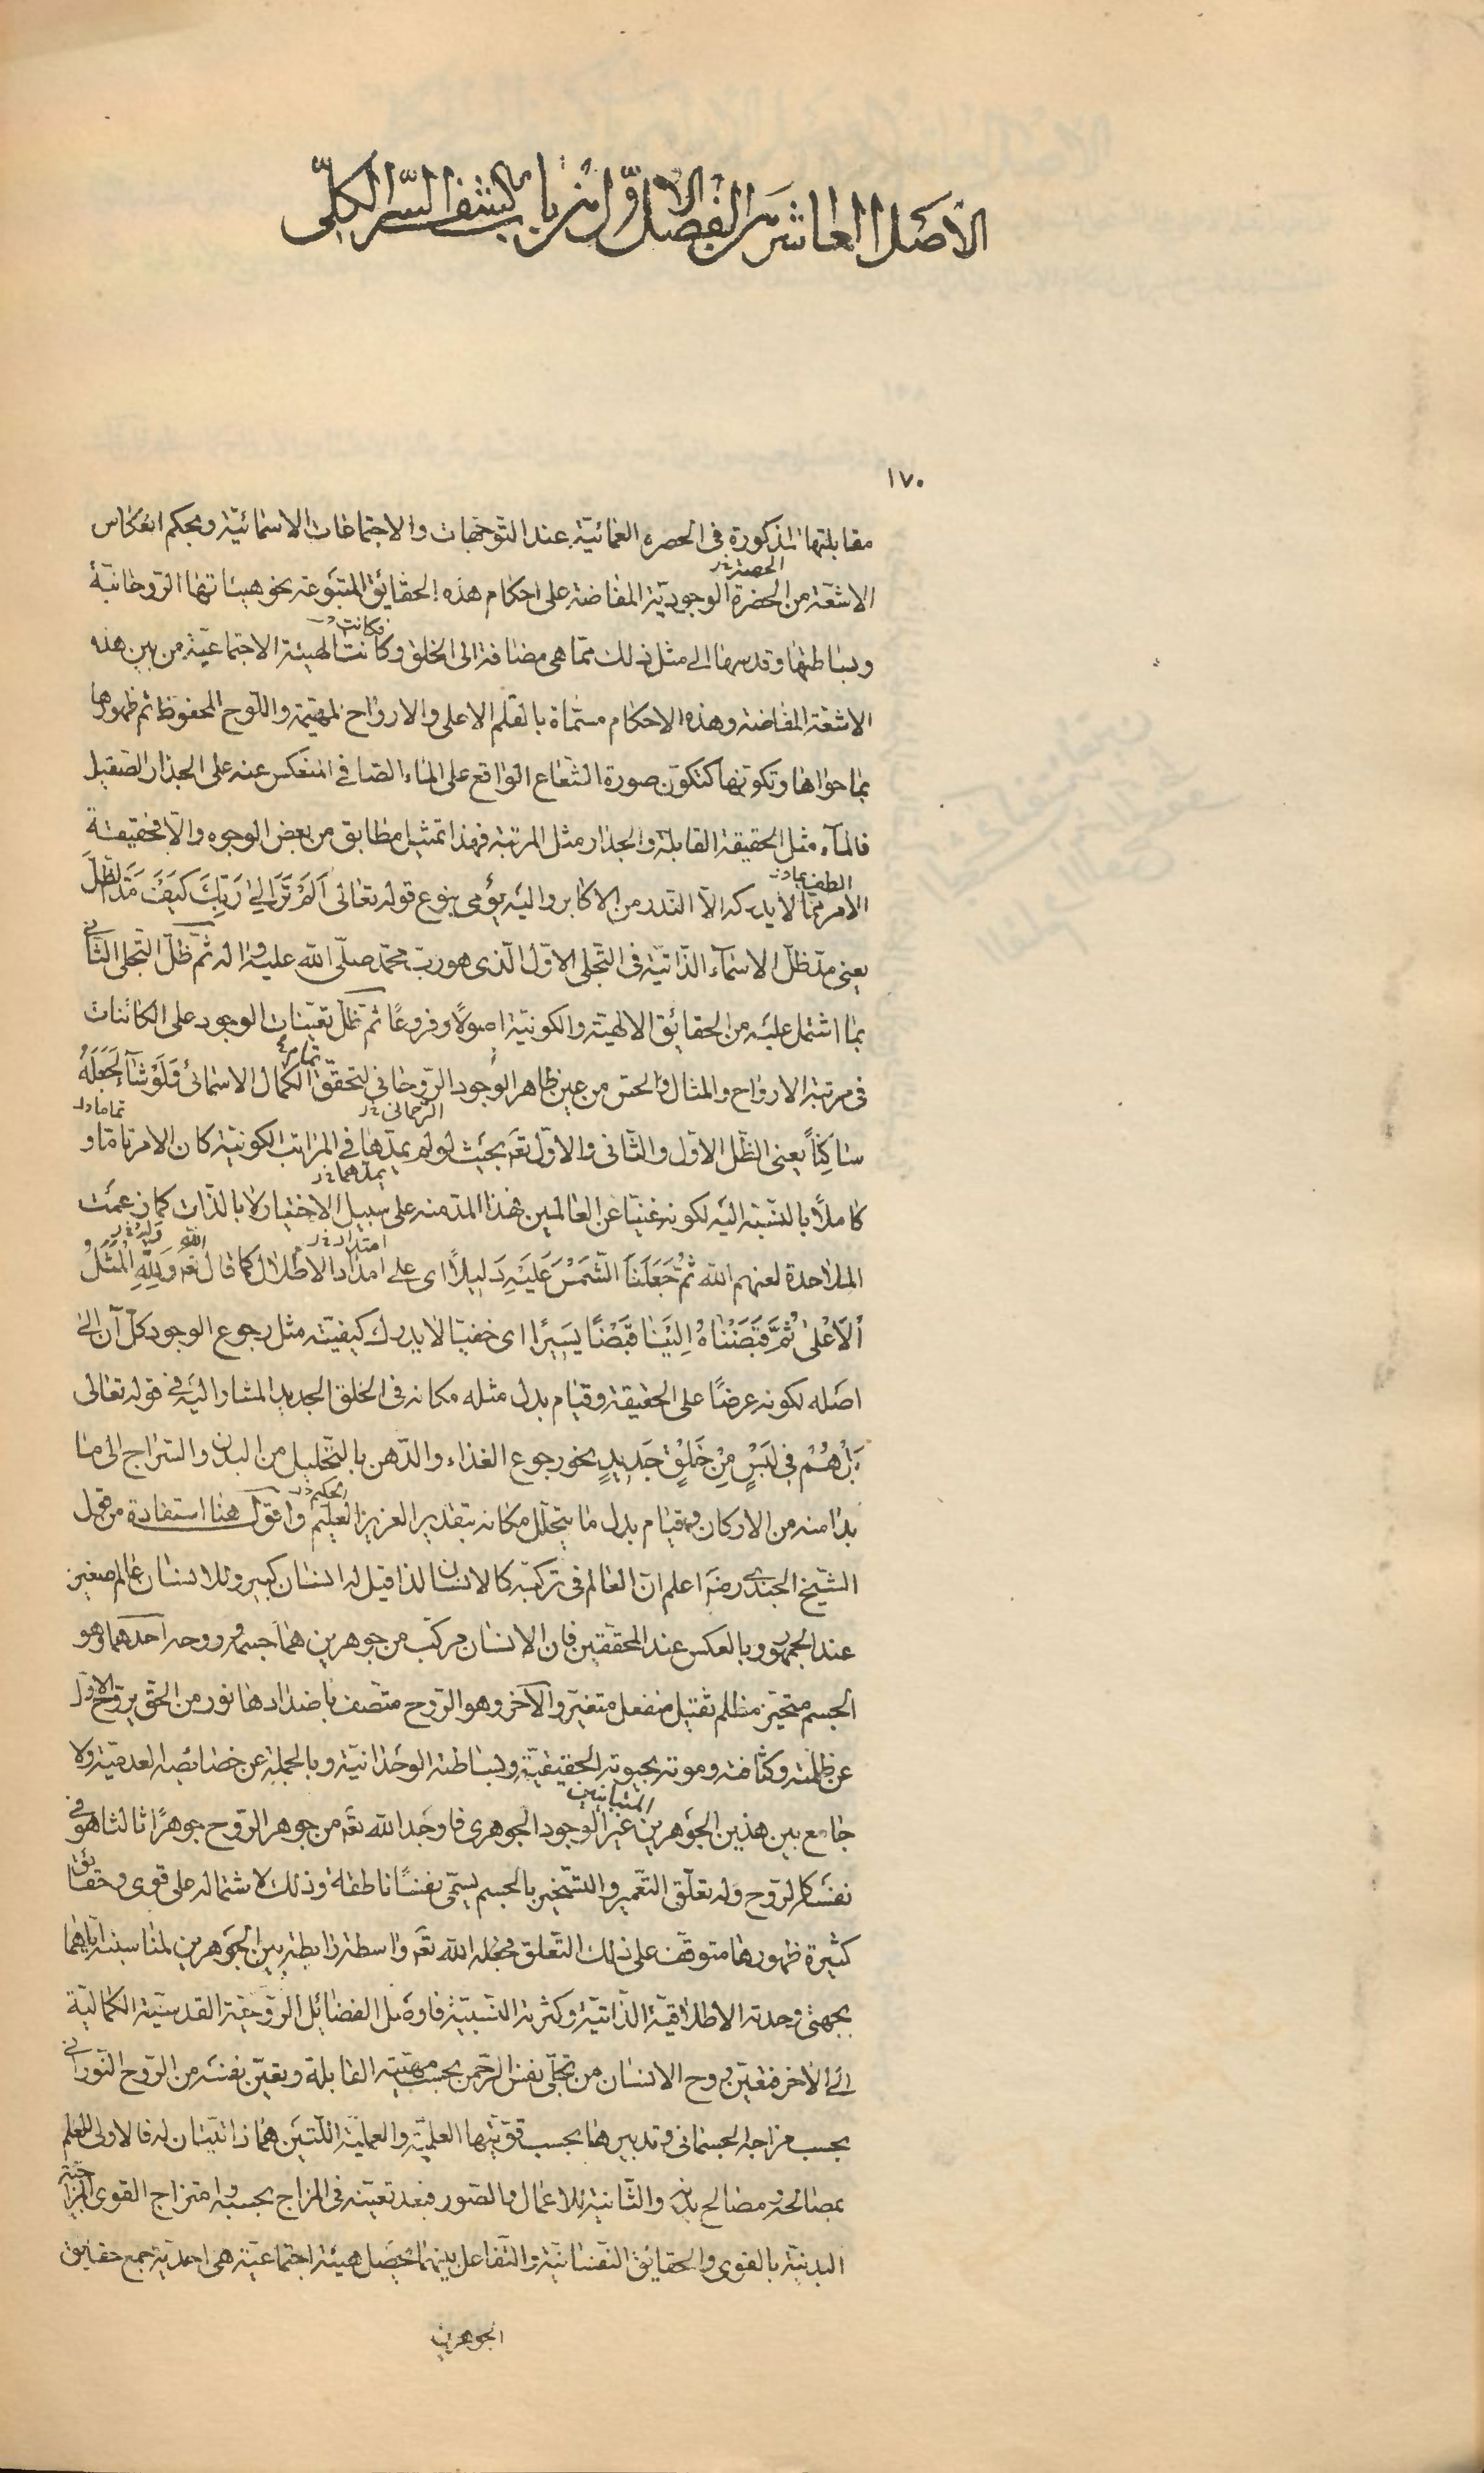 الاصل العاشر من الفصل الاول من باب كشف السر الكلّى
١٧٠
مقابلتها المذكورة فى الحضره العمائيّة عند التوجّهات والاجتماعات الاسمائيّة وبحكم انعكاس
الحصة خ ر
الاشعّة من الحضرة الوجوديّة المفاضة على احكام هذه الحقايق المتبوعة نحو هيئاتها الرّوحانيّة
فكانت
وبساطتها وقدسها الى مثل ذلك ممّا هى مضافة الى الخلق وكانت الهيئة الاجتماعيّة من بين هذه
الاشعّة المفاضة وهذه الاحكام مسمّاة بالقلم الاعلى والارواح المهيّمة واللّوح المحفوظ ثم ظهورها
بما حواها وتكونها كتكوّن صورة الشعاع الواقع على الماء الصّافى المنعكس عنه على الجدار الصّقيل
فالمآء مثل الحقيقة القابلة والجدار مثل المرتبة فهذا تمثيل مطابق من بعض الوجوه والّا فحقيقة
الامر ممّا لا يدركه الّا النّدر من الاكابر واليه يؤمى بنوع قوله تعالى اَلَمْ تَرَ اِلىٰ رَبِّكَ كَيْفَ مَدَّ الظِّلَّ
يعنى مدّ ظلّ الاسمآء الذّاتيّة فى التّجلى الاوّل الّذى هو ربّ محمّد صلّى الله عليه واله ثمّ ظلّ التّجلى الثّانى
بما اشتمل عليه من الحقائق الالهيّة والكونيّة اصولًا وفروعًا ثم ظلّ تعيّنات الوجود على الكائنات
فى مرتبة الارواح والمثال والحسّ من عين ظاهر الوجود الرّوحانى لتحقّق الكمال الاسمائى وَلَوْ شٰآءَ لَجَعَلَهُ
الرّحمانى خ ر
سٰاكِنًا يعنى الظّل الاوّل والثّانى والاوّل تعم بحيث لو لم يمدّها فى المراتب الكونيّة كان الامر تامّا و
يمدّهما خ ر
كاملًا بالنّسبة اليه لكونه غنيّا عن العالمين فهذا المدّ منه على سبيل الاختيار لا بالذّات كما زعمت
امتداد خ ر
الملاحدة لعنهم الله ثُمَّ جَعَلْنَا الشَّمْسَ عَلَيْهِ دَليلًا اى على امداد الاظلال كما قال تعم وَلِلّهِ الْمَثَلُ
اْلاَعْلىٰ ثُمَّ قَبَضْنٰاهُ اِلَيْنٰا قَبْضًا يَسيرًا اى خفيّا لا يدرك كيفيّته مثل رجوع الوجود كلّ آن الى
اصله لكونه عرضًا على الحقيقة وقيام بدل مثله مكانه فى الخلق الجديد المشار اليه فى قوله تعالى
بَلْ هُمْ فى لَبْسٍ مِنْ خَلْقٍ جَديدٍ نحو رجوع الغذاء والدّهن بالتّحليل من البدن والسّراج الى ما
الحكيم خ ر
بدا منه من الاركان وقيام بدل ما يتحلّل مكانه بتقدير العزيز العليم واقول هنا استفادة من قول
الشّيخ الجندى رضه اعلم انّ العالم فى تركبّه كالانسان لذا قيل له انسان كبير وللانسان عالم صغير
عند الجمهور وبالعكس عند المحققين فان الانسان مركّب من جوهرين هما جسمه وروحه احدهما وهو
الجسم متحيّز مظلم ثقيل منفعل متغيّر والآخر وهو الرّوح متّصف باضدادها نور من الحقّ يروّح الاوّل
عن ظلمته وكثافته وموته بحيوته الحقيقيّة وبساطته الوحدانيّة وبالجملة عن خصائصه العدميّة ولا
المتباينين
جامع بين هذين الجوهرين غير الوجود الجوهرى فاوجد الله تعم من جوهر الرّوح جوهرًا ثالثا هو فى
نفسه كالرّوح وله تعلّق التّعمير والتّسخير بالجسم يسمّى نفسًا ناطقة وذلك لاشتماله على قوى وحقائق
كثيرة ظهورها متوقّف على ذلك التّعلق فجعله الله تعم واسطة رابطة بين الجوهرين لمناسبته ايّاهما
بجهتى وحدته الاطلاقيّة الذّاتيّة وكثرته النّسبيّة فاوصل الفضائل الرّوحيّة القدسيّة الكماليّة
الى الآخر فتعيّن روح الانسان من تجلّى نفس الرّحمن بحسب مهيّته القابلة وتعيّن نفسه من الرّوح النّورانى
بحسب مزاجه الجسمانى وتدبيرها بحسب قوّتيها العلميّة والعمليّة اللّتين هما ذاتيّتان له فالاولى للعلم
بمصالحه ومصالح بدنه والثّانية للاعمال والصّور فبعد تعيّنه فى المزاج بحسبه وامتزاج القوى المزاجيّة
البدنيّة بالقوى والحقايق النّفسانيّة والتّفاعل بينهما تحصل هيئة اجتماعيّة هى احديّة جمع حقايق
الجوهرين